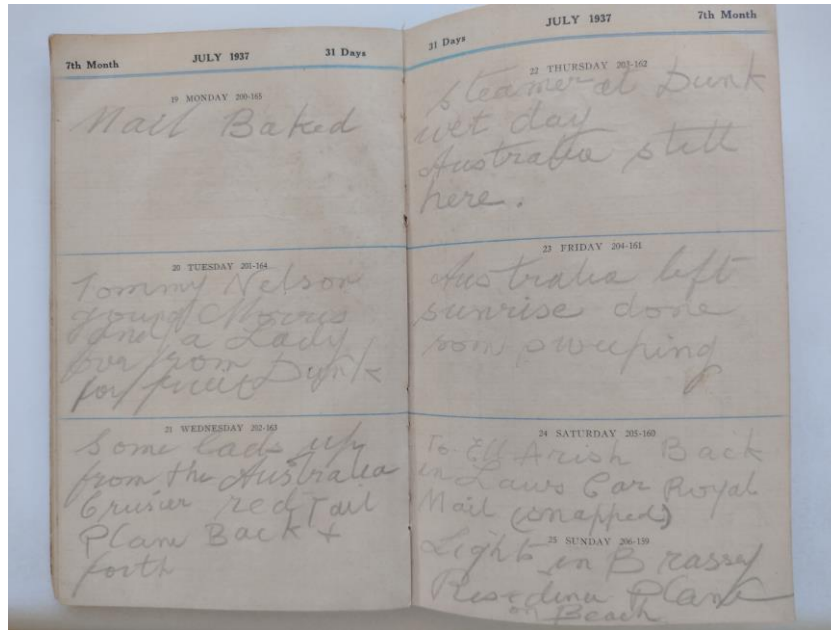 7th Month JULY 1937 31 Days
19 MONDAY 200-165
Mail Baked
20 TUESDAY 201-164
Tommy Nelson
young Morris
and a Lady
over from
for fruit Dunk
21 WEDNESDAY 202-163
Some lads up
from the Australia
Crusier red Tail
Plane Back +
forth
31 Days JULY 1937 7th Month
22 THURSDAY 203-162
Steamer at Dunk
wet day
Australia still
here.
23 FRIDAY 204-161
Australia left
sunrise done
som sweeping
24 SATURDAY 205-160
To Ell Arish Back
in Laws Car Royal
Mail (snapped)
25 SUNDAY 206-159
Lights in Brassey
Plane
on Beach